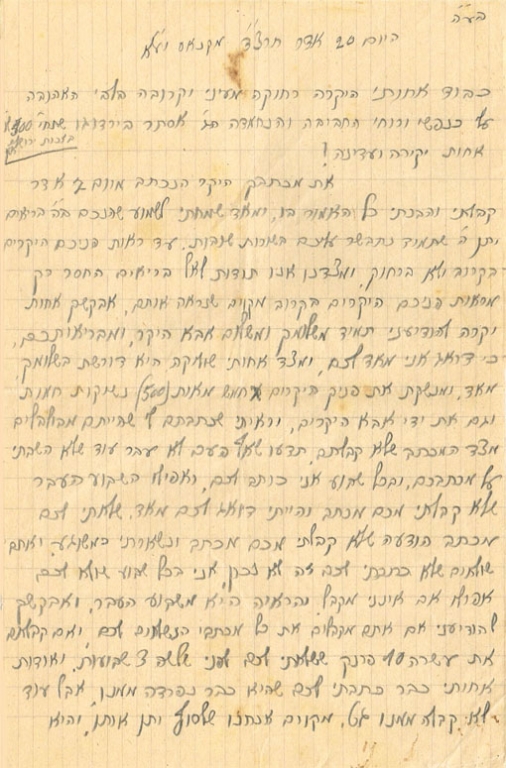 בע״ה
היום 20 אדר תרצ״ד מקנאס יע״א
כבוד אחותי היקרה רחוקה מעיני וקרובה בלבי האהובה
על כנפשי ורוחי החביבה והנחמדה הג׳ אסתר בירדוגו שתחי׳
אחות יקירה ועדינה!
את מכתבך היקר הנכתב מיום 7 אדר
קבלתי והבנתי כל האמור בו, ומאד שמחתי לשמוע שהנכם ב״ה בריאים
יתן ה׳ שתמיד נתבשר עליכם בשורות טובות. עד ראות פניכם היקרים
בקרוב ולא ברחוק, ומצדנו אנו תודות לאל בריאים החסר רק
מראות פניכם היקרים בקרוב מקוים שנראה אותם, אבקשך אחות
יקרה להודיעני תמיד משלומך ומשלום אבא היקר, ומבריאותכם,
כי דואג אני מאד לכם, ומצד אחותי היא דורשת בשלומך
מאד, ומנשקת את פניך היקרים חמש מאות (500) נשיקות חמות
וגם את ידי אבא היקרים, וראיתי שכתבתם לי שהייתם מבוהלים
מצד המכתב שלא קבלתם, תדעו שאף פעם לא עבר עוד שלא השבתי
על מכתבכם, ובכל שבוע אני כותב לכם, ואפילו השבוע העבר
שלא קבלתי מכם מכתב והייתי דואג לכם מאד, שלחתי לכם
מכתב הודעה שלא קבלתי מכם מכתב ונשארתי כמשוגע, ואתם
שלא כתבתי לכם זה לא נכון, אני בכל שבוע שולח לכם,
אפילו אם אינני מקבל, והראיה היא משבוע העבר, ואבקשך
להודיעני אם אתם מקבלים את כל מכתבי הנשלחים לכם ואם קבלתם
את עשרה 10 פרנק ששלחתי לכם לפני שלשה 3 שבועות. ואודות
אחותי כבר כתבתי לכם שהיא כבר נפרדה ממנו, אבל עוד
לא קבלה ממנו גט, מקוים אנחנו שלסוף יתן אותו, והיא